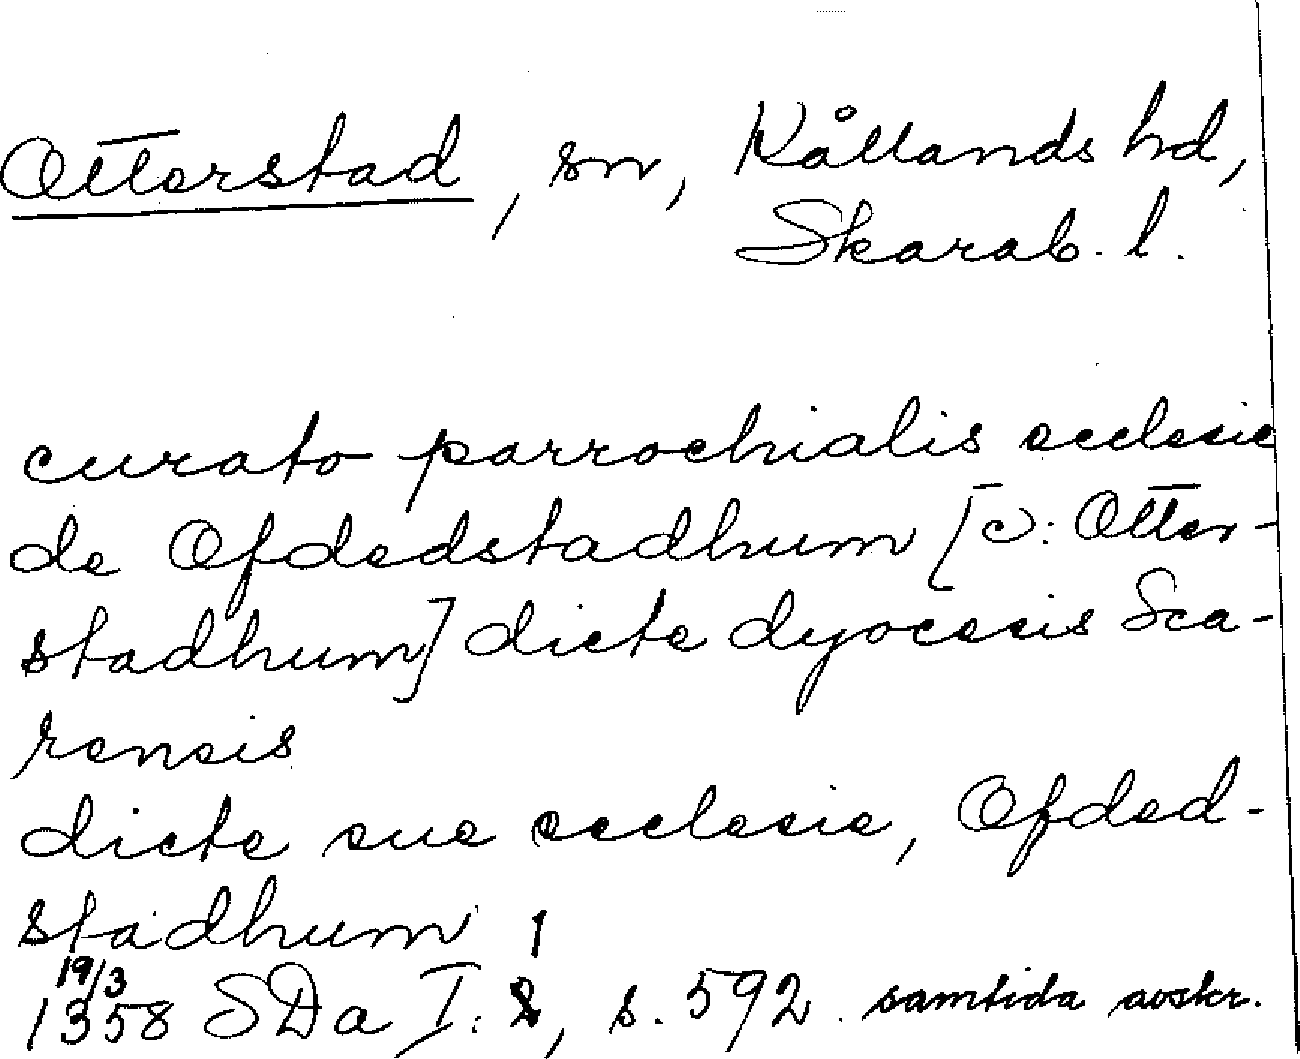 Otterstad, sn, Kållands hd,
Skarab. l.
curato parrochialis ecclesie
de Ofdedstadhum [ɔ: Otter-
stadhum] dicte dyocesis Sca-
rensis
dicte sue ecclesie, Ofded-
stadhum
19/3
1358 SDa I: , s. 592. samtida avskr.